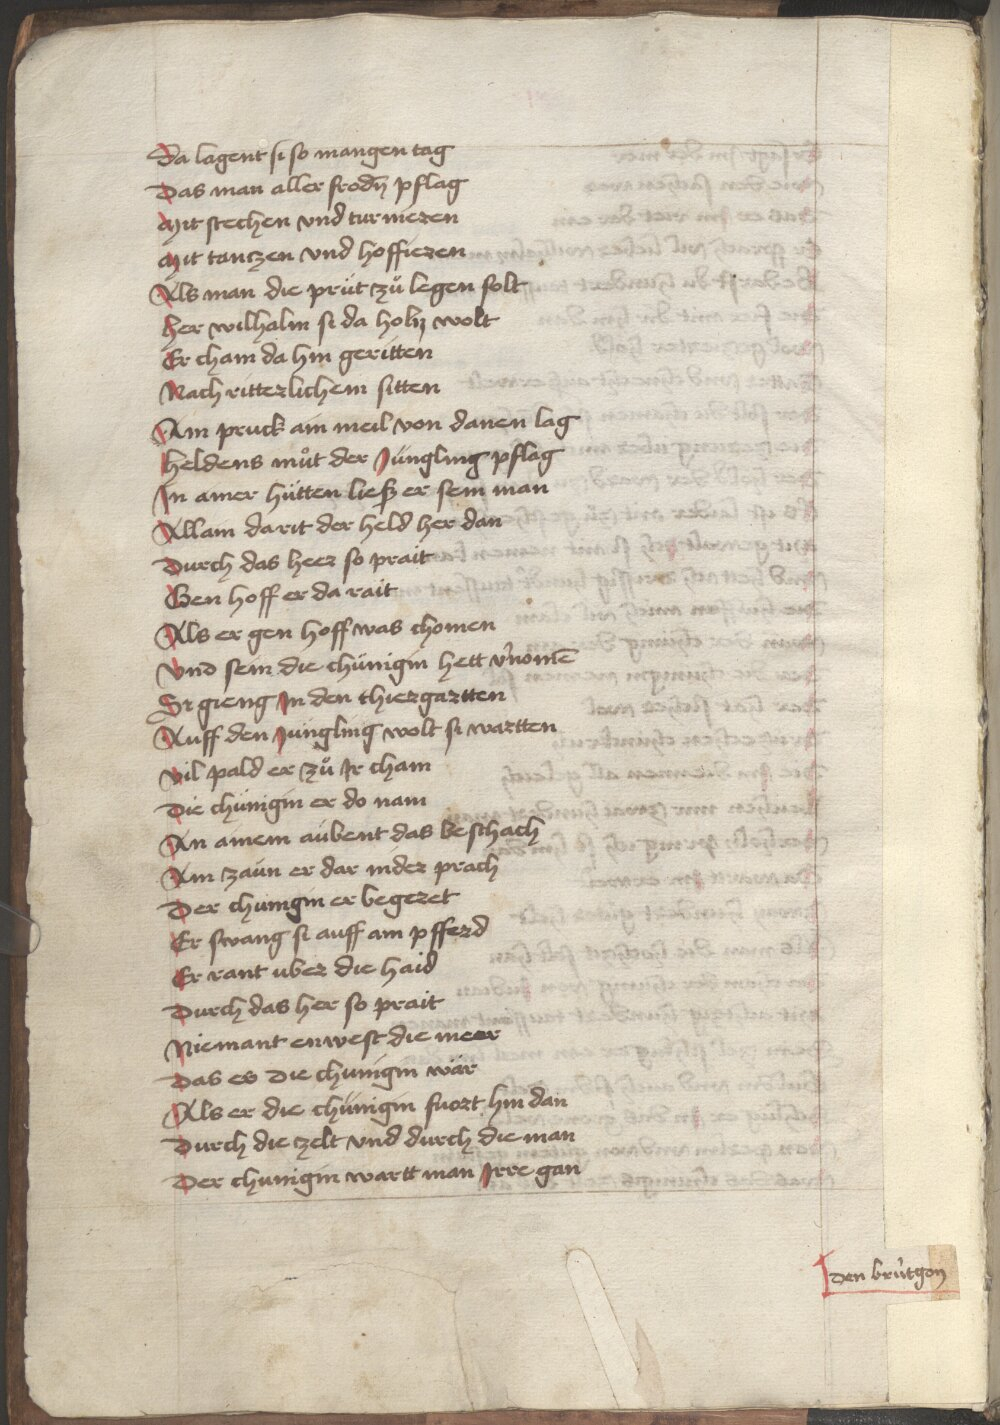 Da lagent si so mangen tag
Das man aller frodn̄ pflag
Mit stechen vnd turnieren
Mit tanczen vnd hoffieren
Als man die prüt zů legen solt
her wilhalm si da holn wolt
Er cham da hin geritten
Nach ritterlichem sitten
Ain pruck ain meil von danen lag
heldens můt der Jüngling pflag
In ainer hütten ließ er sein man
Allain da rit der held her dan
Durch das heer so prait
Gen hoff er da rait
Als er gen hoff was chomen
Vnd sein die chünigin hett v̾nomē
Sr gieng In den thiergartten
Auff den Jüngling wolt si wartten
Vil pald er zů Ir cham
Die chünigin er do nam
An ainem aubent das beschach
Ain zaun er dar nider prach
Der chunigin er begeret
Er swang si auff ain pfferd
Er rant uber die haid
Durch das her so prait
Niemant enwest die meer
Das es die chunigin wär
Als er die chünigin fuort hin dan
Durch die zelt vnd durch die man
Der chunigin wartt man Irre gan
den brütgon